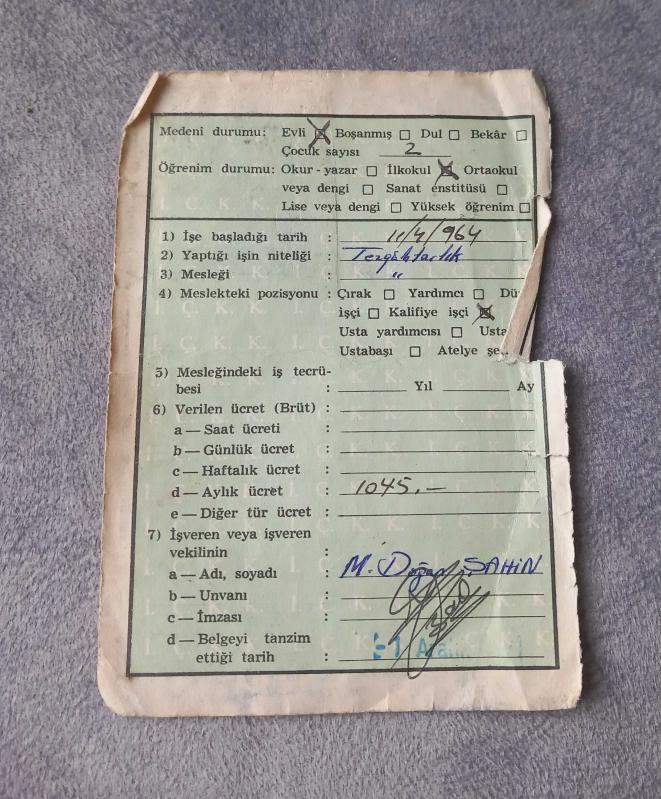 Medenî durumu: Evli ☒ Boşanmış ☐ Dul ☐ Bekâr ☐
Çocuk sayısı 2
Öğrenim durumu: Okur - yazar ☐ İlkokul ☒ Ortaokul
veya dengi ☐ Sanat enstitüsü ☐
Lise veya dengi ☐ Yüksek öğrenim ☐
1) İşe başladığı tarih : 11/4/964
2) Yaptığı işin niteliği : Tezgâhtarlık
3) Mesleği : "
4) Meslekteki pozisyonu : Çırak ☐ Yardımcı ☐ Dü
işçi ☐ Kalifiye işçi ☒
Usta yardımcısı ☐ Usta
Ustabaşı ☐ Atelye şe
5) Mesleğindeki iş tecrü-
besi : Yıl Ay
6) Verilen ücret (Brüt) :
a — Saat ücreti :
b — Günlük ücret :
c — Haftalık ücret :
d — Aylık ücret : 1045.—
e — Diğer tür ücret :
7) İşveren veya işveren
vekilinin :
a — Adı, soyadı : M. Doğan ŞAHİN
b — Unvanı :
c — İmzası :
d — Belgeyi tanzim
ettiği tarih : -1 Ara